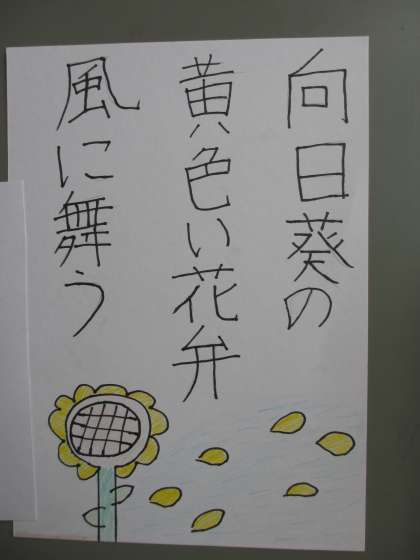 向日葵の
黄色い花弁
風に舞う